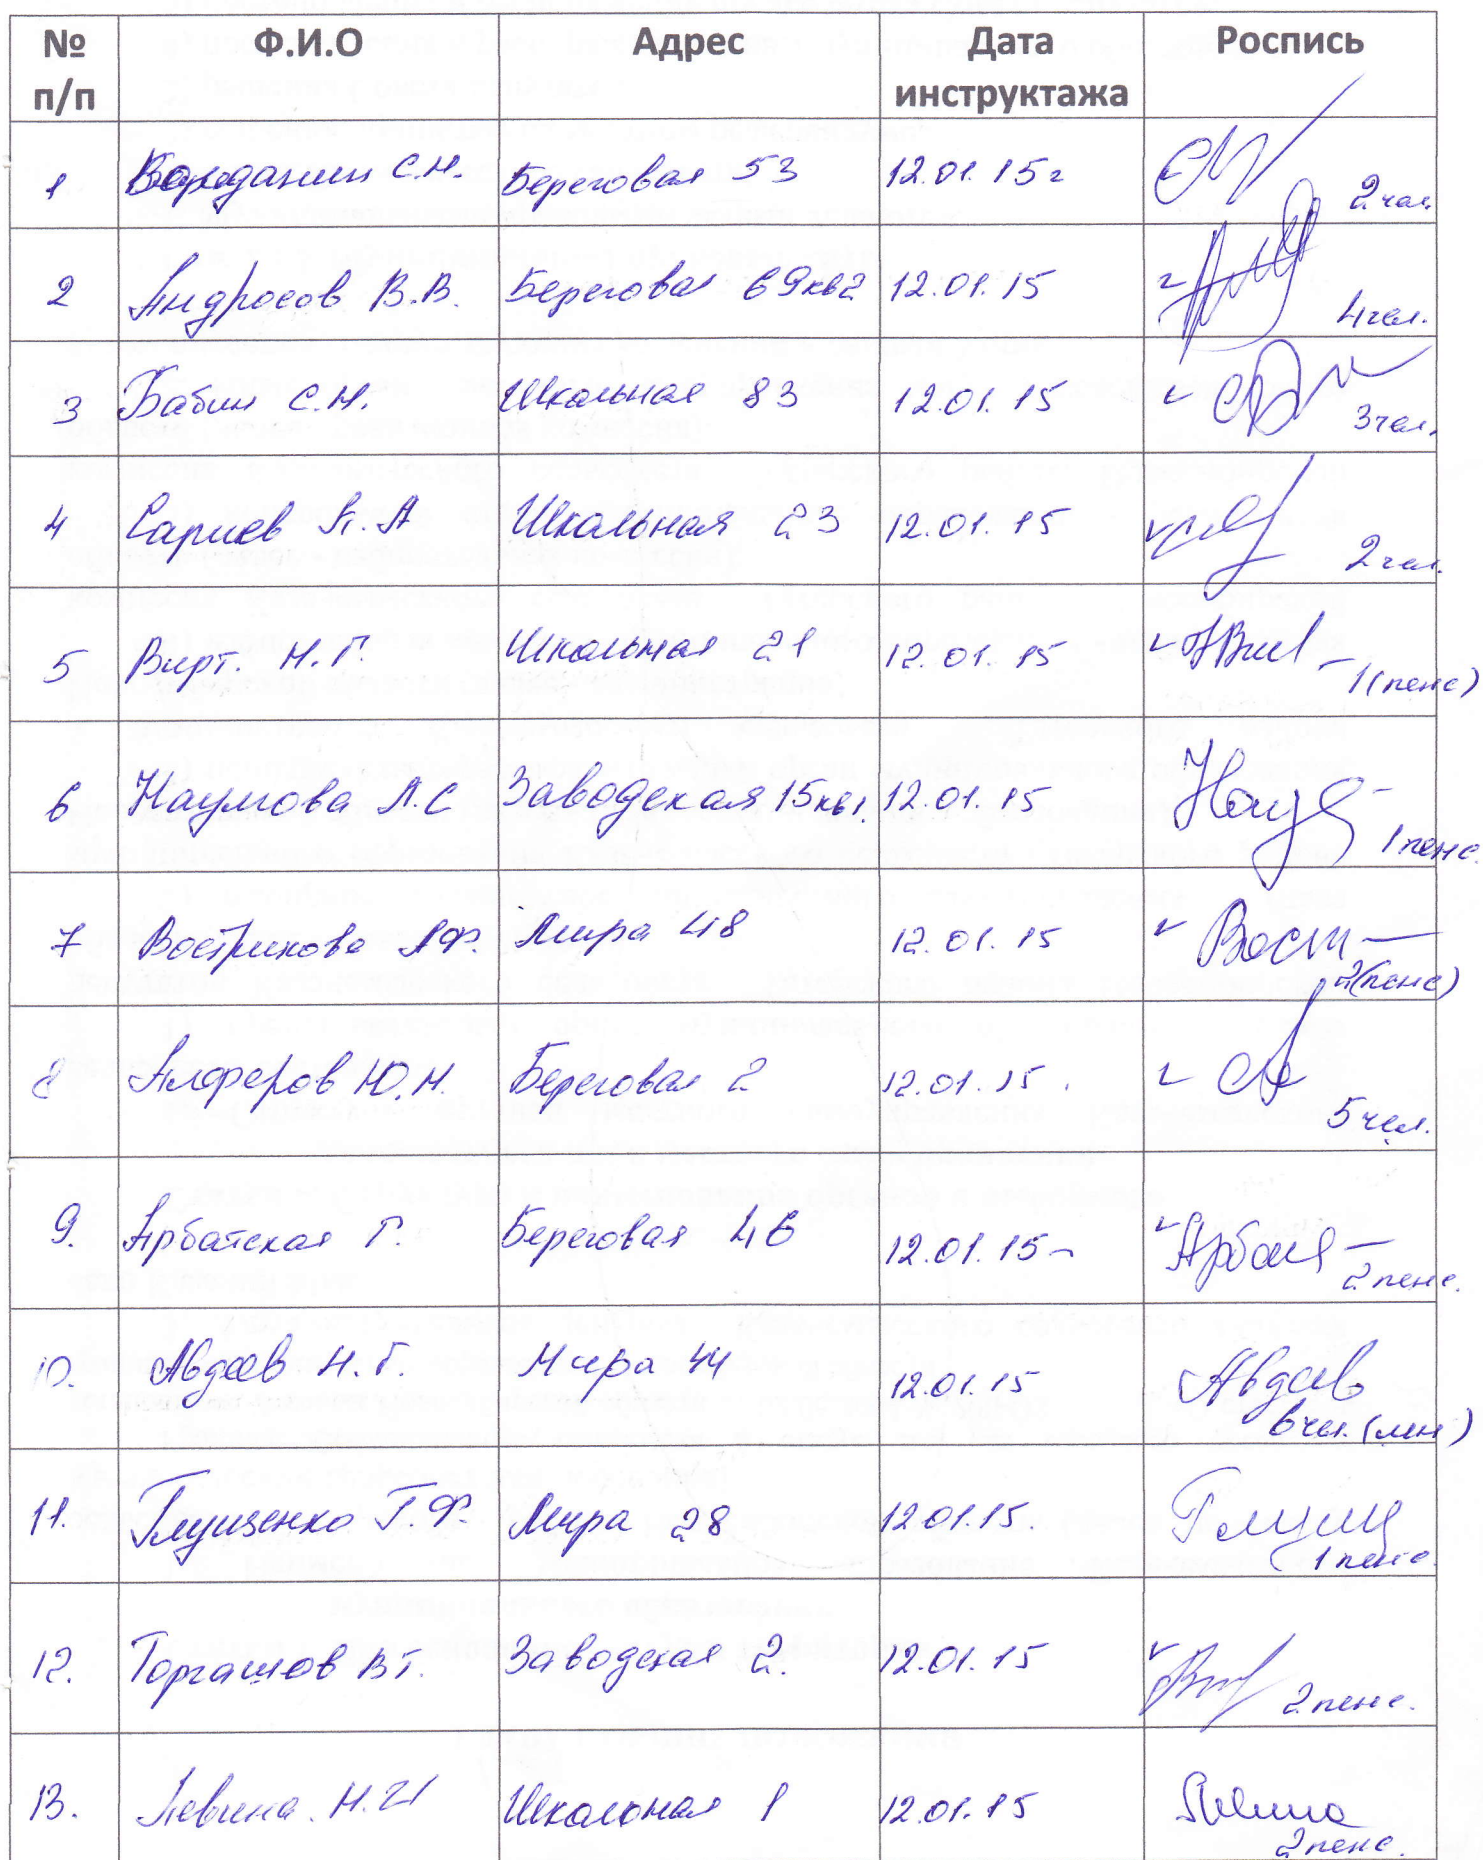 № п/п Ф.И.О Адрес Дата инструктажа Роспись
1 С.Н. Береговая 53 12.01.15г 2 чел.
2 Андросов В.В. Береговая 69кв2 12.01.15 4 чел.
3 Бабин С.Н. Школьная 83 12.01.15 3 чел.
4 Сариев А.А Школьная 23 12.01.15 2 чел.
5 Вирт. Н.Г. Школьная 21 12.01.15 – 1(пенс)
6 Наумова Л.С Заводская 15кв1. 12.01.15 1 пенс.
7 Вострикова А.Ф. Мира 48 12.01.15 Вост 2(пенс)
8 Алферов Ю.Н. Береговая 2 12.01.15. 5 чел.
9. Арбатская Г. Береговая 46 12.01.15 2 пенс.
10. Авдеев Н.Г. Мира 44 12.01.15 Авдеев 6 чел. (мн)
11. Глущенко Г.Ф. Мира 28 12.01.15. Глущ 1 пенс.
12. Торгашов В.Г. Заводская 2. 12.01.15 2 пенс.
13. Н.И Школьная 1 12.01.15 2 пенс.